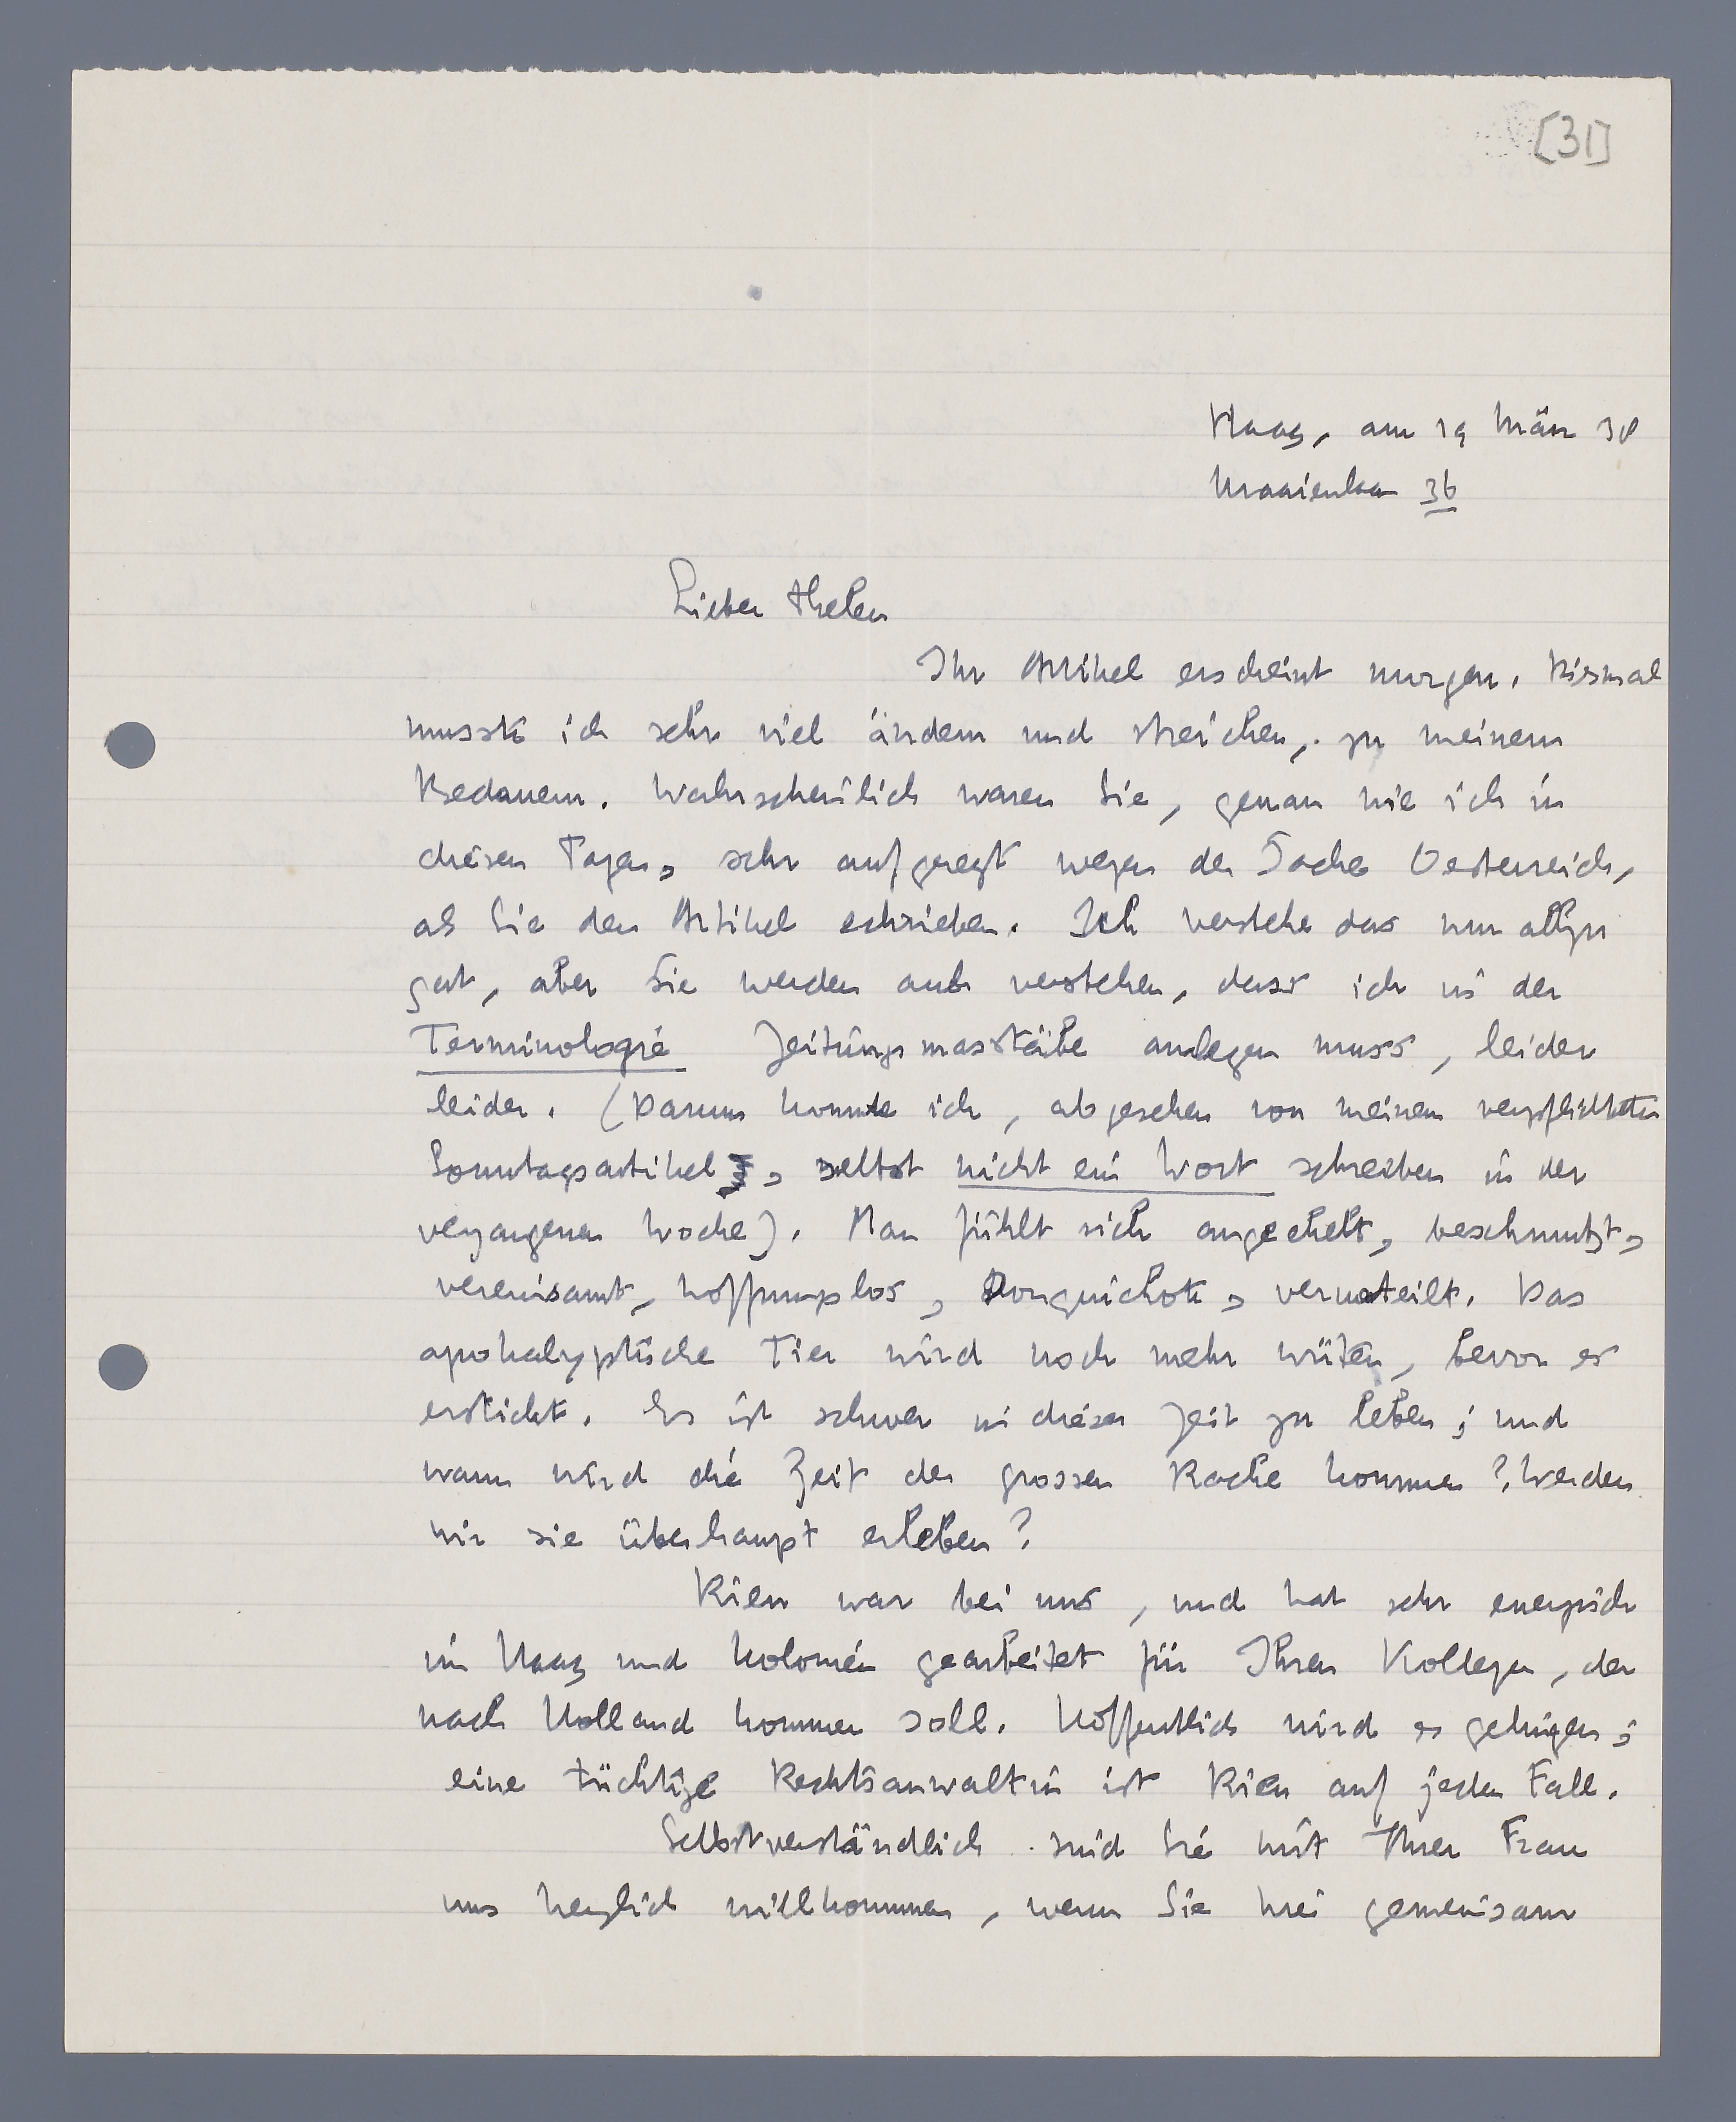 [31]
Haag, am 19 März 38
Maaienlaan 36
Lieber Thelen
Ihr Artikel erscheint morgen. Diesmal
musste ich sehr viel ändern und streichen, zu meinem
Bedauern. Wahrscheinlich waren Sie, genau wie ich in
diesen Tagen, sehr aufgeregt wegen der Sache Oesterreich,
als Sie den Artikel schrieben. Ich verstehe das nur allzu
gut, aber Sie werden auch verstehen, dass ich in der
Terminologie Zeitungsmasstäbe anlegen muss, leider
leider. (Darum konnte ich, abgesehen von meinem verpflichteten
Sonntagsartikel, selbst nicht ein Wort schreiben in der
vergangenen Woche). Man fühlt sich angeekelt, beschmutzt,
vereinsamt, hoffnungslos, Donquichote, verurteilt. Das
apokalyptische Tier wird noch mehr wüten, bevor es
erstickt. Es ist schwer in dieser Zeit zu leben; und
wann wird die Zeit der grossen Rache kommen? Werden
wir sie überhaupt erleben?
Rien war bei uns, und hat sehr energisch
im Haag und Kolonién gearbeitet für Ihren Kollegen, der
nach Holland kommen soll. Hoffentlich wird es gelingen;
eine tüchtige Rechtsanwaltin ist Rien auf jeden Fall.
Selbstverständlich sind Sie mit Ihrer Frau
uns herzlich willkommen, wenn Sie hier gemeinsam